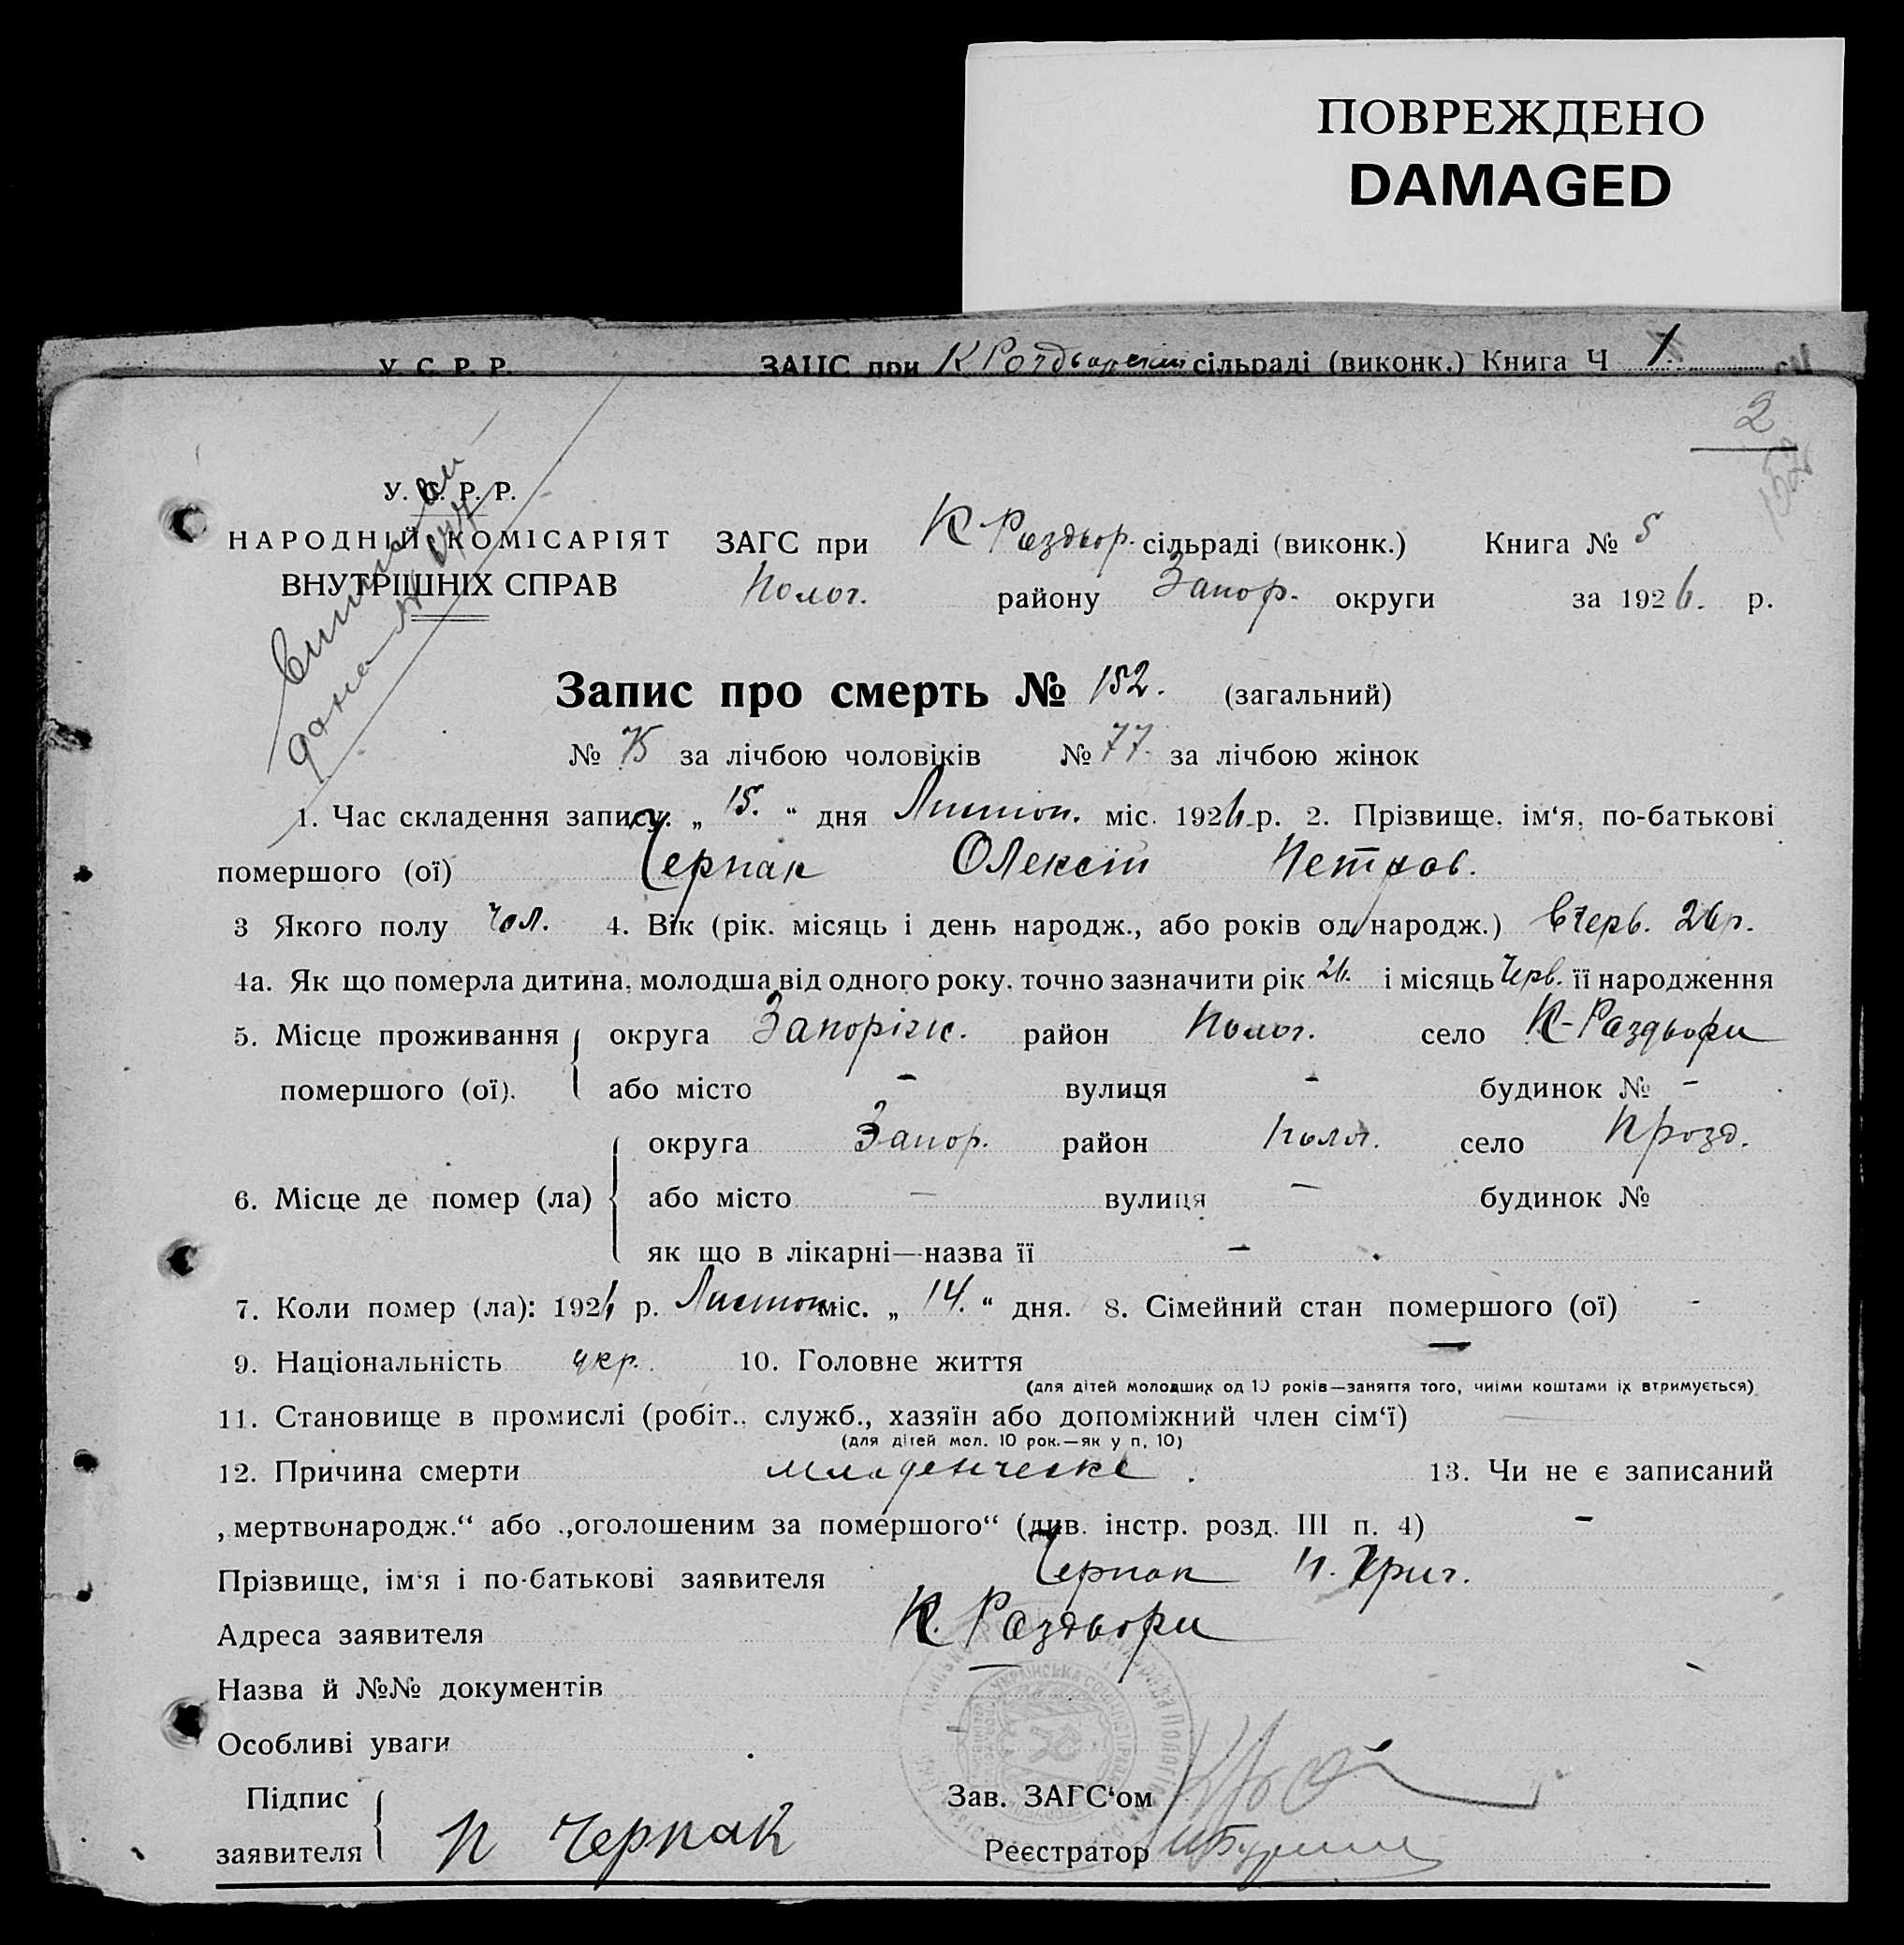 ПОВРЕЖДЕНО
DAMAGED
У. С. Р. Р. ЗАГС при К Роздворскій сільраді (виконк.) Книга Ч 1.
2
152
У. С. Р. Р.
НАРОДНІЙ КОМІСАРІЯТ ЗАГС при К Раздвор. сільраді (виконк.) Книга № 5
ВНУТРІШНІХ СПРАВ Полог. району Запор. округи за 1926. р.
дана
Запис про смерть № 152. (загальний)
№ 75 за лічбою чоловіків № 77. за лічбою жінок
1. Час складення запису. „ 15. “ дня Листоп. міс. 1926 р. 2. Прізвище, ім‘я, по-батькові
помершого (ої) Черпак Олексій Петров.
3 Якого полу чол. 4. Вік (рік. місяць і день народж., або років од народж.) в черв. 26 р.
4а. Як що померла дитина, молодша від одного року, точно зазначити рік 26. і місяць Черв. її народження
5. Місце проживання округа Запоріж. район Полог. село К-Раздвори
помершого (ої). або місто - вулиця - будинок № -
округа Запор. район Полог. село К розд.
6. Місце де помер (ла) або місто — вулиця — будинок №
як що в лікарні—назва її —
7. Коли помер (ла): 1926 р. Листоп. міс. „ 14. “ дня. 8. Сімейний стан помершого (ої) -
9. Національність укр. 10. Головне життя —
(для дітей молодших од 10 років—заняття того, чиїми коштами їх втримується)
11. Становище в промислі (робіт., служб., хазяїн або допоміжний член сім‘ї) —
(для дітей мол. 10 рок.—як у п. 10)
12. Причина смерти младенческе. 13. Чи не є записаний
„мертвонародж.“ або „оголошеним за помершого“ (див. інстр. розд. III п. 4) -
Прізвище, ім‘я і по-батькові заявителя Черпак П. Григ.
Адреса заявителя К. Раздвори
Назва й №№ документів —
Особливі уваги
Підпис Зав. ЗАГС‘ом
заявителя П Черпак Реєстратор